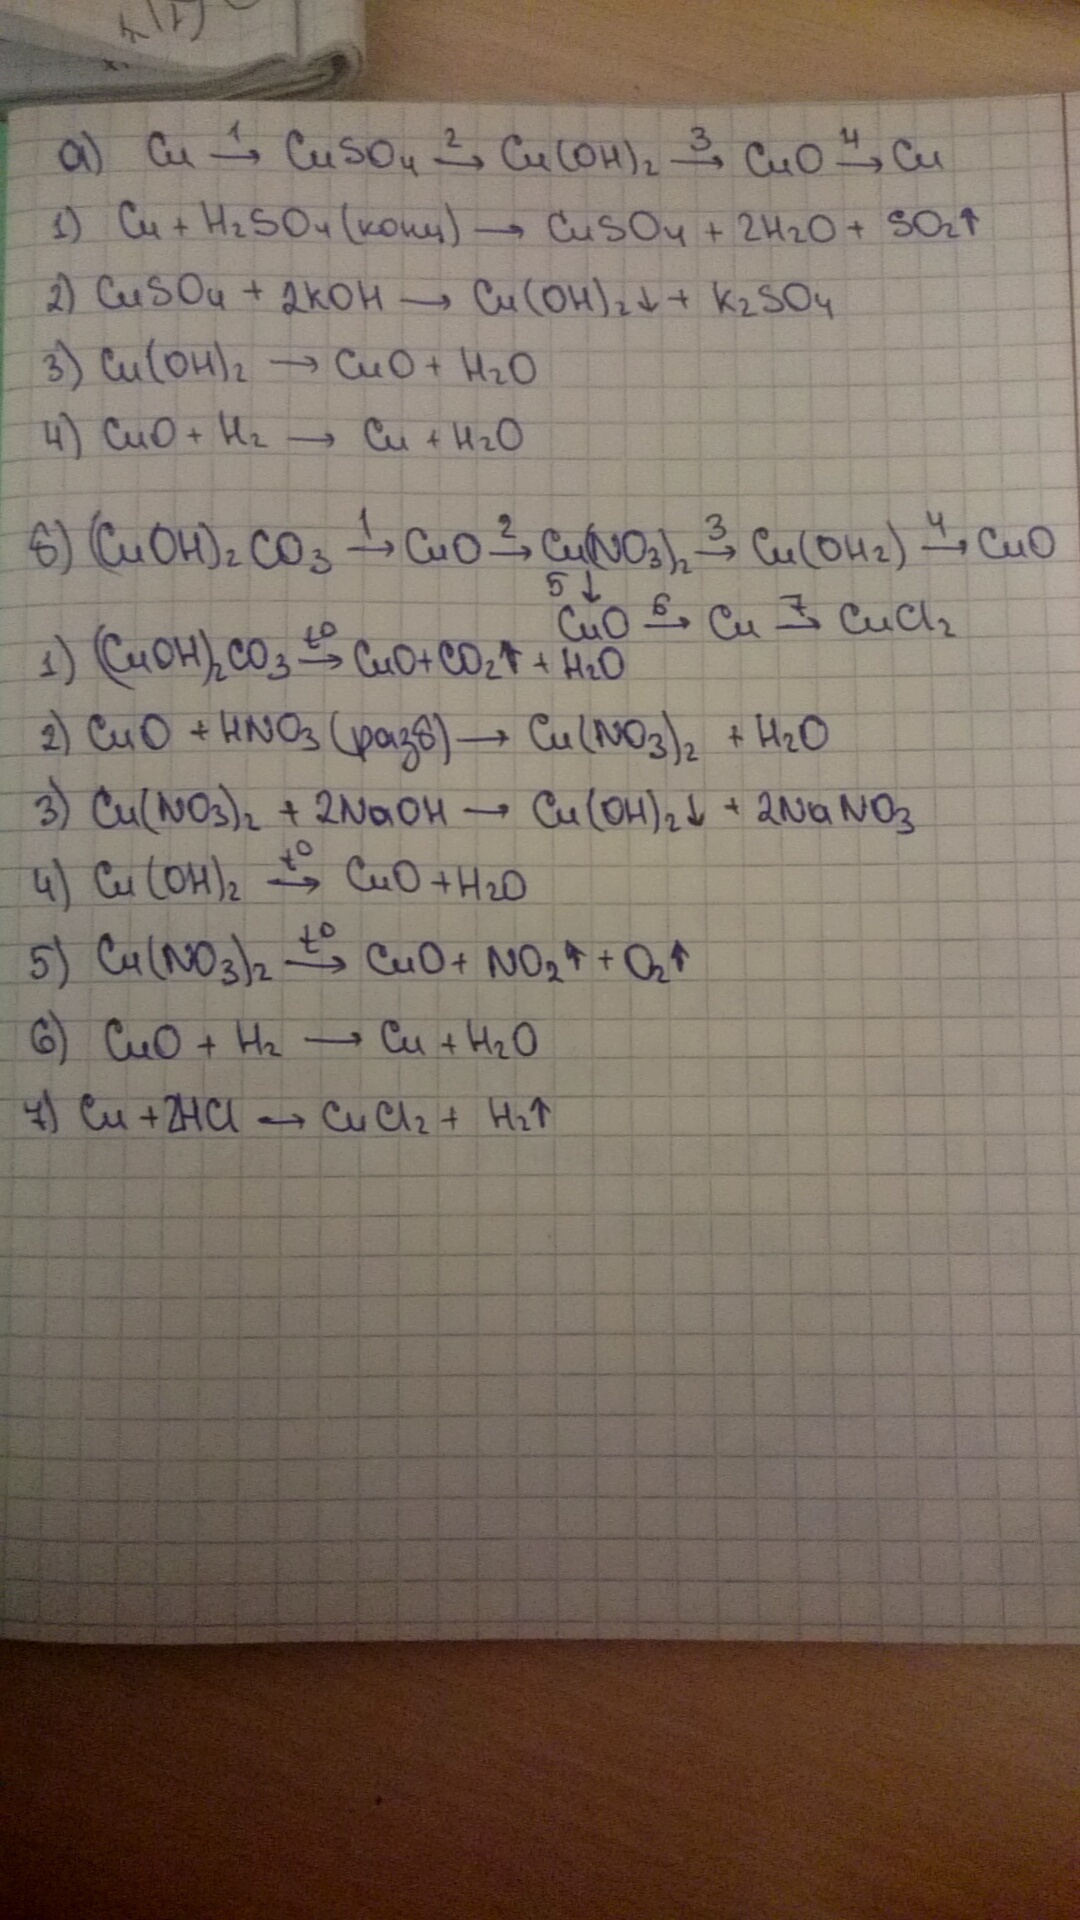 а) Cu 1→ CuSO4 2→ Cu(OH)2 3→ CuO 4→ Cu
1) Cu + H2SO4(конц) → CuSO4 + 2H2O + SO2↑
2) CuSO4 + 2KOH → Cu(OH)2↓ + K2SO4
3) Cu(OH)2 → CuO + H2O
4) CuO + H2 → Cu + H2O
б) (CuOH)2CO3 1→ CuO 2→ Cu(NO3)2 3→ Cu(OH2) 4→ CuO
5↓
CuO 6→ Cu 7→ CuCl2
1) (CuOH)2CO3 t°→ CuO + CO2↑ + H2O
2) CuO + HNO3 (разб) → Cu(NO3)2 + H2O
3) Cu(NO3)2 + 2NaOH → Cu(OH)2↓ + 2NaNO3
4) Cu(OH)2 t°→ CuO + H2O
5) Cu(NO3)2 t°→ CuO + NO2↑ + O2↑
6) CuO + H2 → Cu + H2O
7) Cu + 2HCl → CuCl2 + H2↑